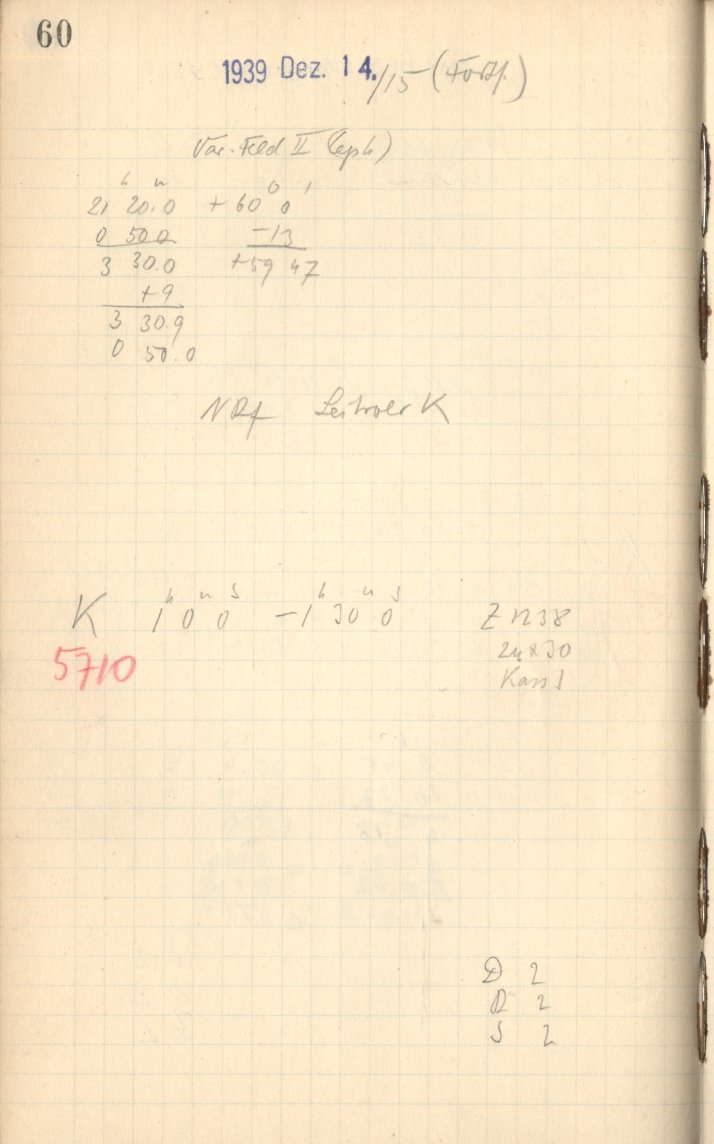 60
1939 Dez. 14./15 (Forts.)
Var. Feld II (eph)
h m ° '
21 20.0 + 60 0
0 50 0 - 13
3 30.0 + 59 47
+ 9
3 30.9
0 50.0
NRf K
h m s h m s
K 1 0 0 - 1 30 0 Z 1238
5710 24 x 30
Kass 1
D 2
R 2
S 2